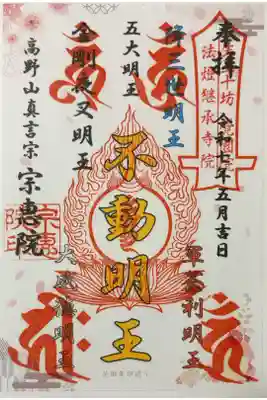 奉拝
法燈継承寺院
令和七年五月吉日
降三世明王
軍荼利明王
五大明王
不動明王
金剛夜叉明王
大威徳明王
高野山真言宗
宗惠院